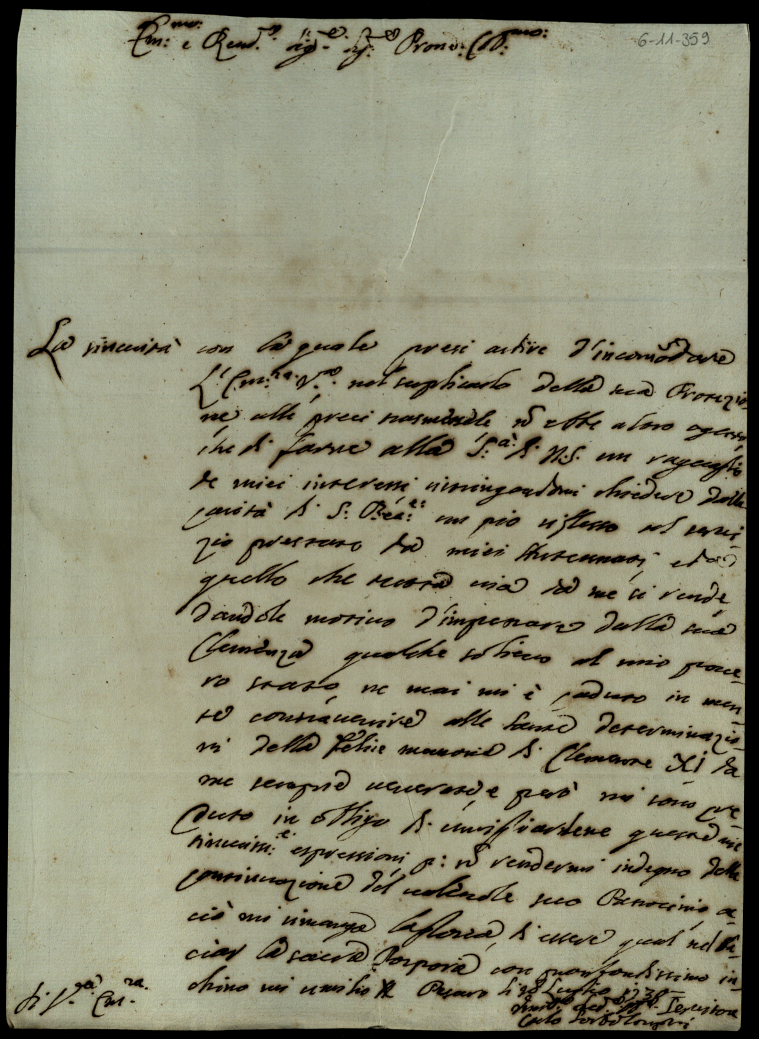 Em:mo e Rend:o sig:e sig:e Prone: Coll:mo:
6-11-359
La sincerità con la quale presi ardire d'incomodare
L'Em:ra V:a nel suplicarlo della sua Protezio-
ne alle preci trasmessele nõ ebbe altro oggetto
che di farne alla S:tà di N.S. un ragguaglio
de miei interessi ristringendomi chiedere dalla
carità di S: Bea:e un pio riflesso al servi-
zio prestato da miei Antenati, e da
quello che tuttavia da me si rende
dandole motivo d'impetrare dalla sua
Clemenza qualche solievo al mio pove-
ro stato, ne mai mi è caduto in men-
te contravenire alle sante determinazio-
ni della felice memoria di Clemente XI da
me sempre venerate e però mi sono cre-
duto in obligo di umiliarlene queste mie
sincerissi:e espressioni p: nõ rendermi indegno della
continuazione del valevole suo Patrocinio ac-
ciò mi rimanga la gloria di essere qual nel ba-
ciar la sacra Porpora con profondissimo in-
chino mi umilio Pesaro li 28 Luglio
Di V:ra Em:ra
Carlo